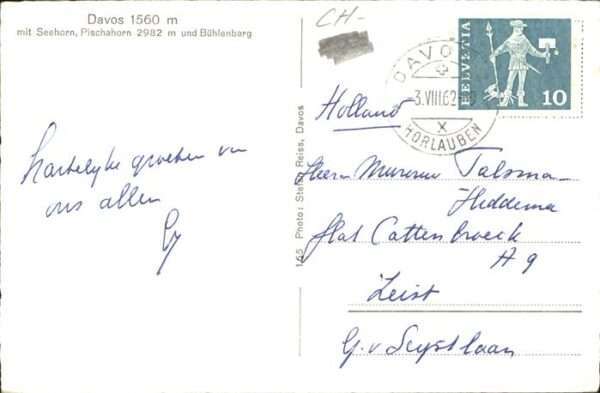 Davos 1560 m
mit Seehorn, Pischahorn 2982 m und Bühlenbarg
CH-
HELVETIA
10
DAVOS
3.VIII.62
HORLAUBEN
hartelyke groeten van
ons allen
165 Photo: Stefan Reiss, Davos
Holland
Talsma-
Heddema
flat Cattenbroeck
A 9
Zeist
G. v